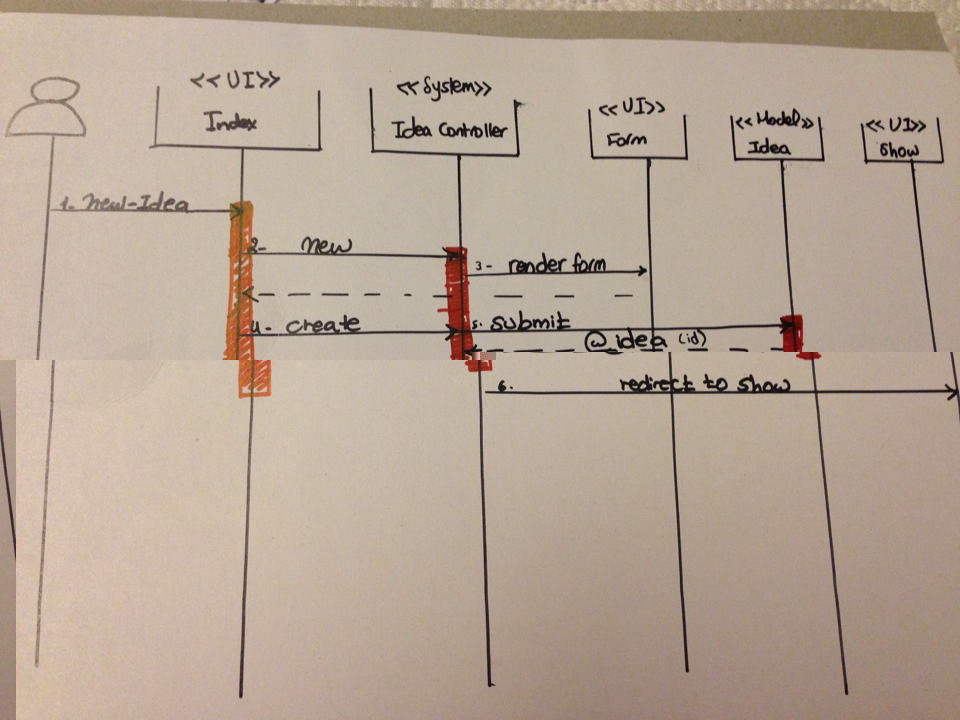 <<UI>>
Index
<<System>>
Idea Controller
<<UI>>
Form
<<Model>>
Idea
<<UI>>
Show
1- new-Idea
2- new
3- render form
4- create
5. submit
@idea (id)
6. redirect to show